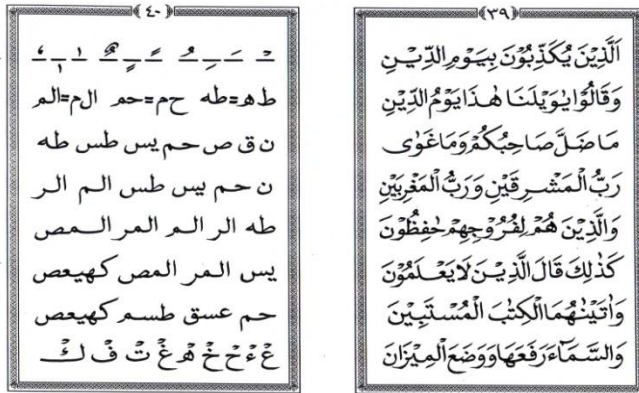 ﴿٣٩﴾
اَلَّذِيْنَ يُكَذِّبُوْنَ بِيَوْمِ الدِّيْنِ
وَقَالُوْا يٰوَيْلَنَا هٰذَا يَوْمُ الدِّيْنِ
مَا ضَلَّ صَاحِبُكُمْ وَمَا غَوٰى
رَبُّ الْمَشْرِقَيْنِ وَرَبُّ الْمَغْرِبَيْنِ
وَالَّذِيْنَ هُمْ لِفُرُوْجِهِمْ حٰفِظُوْنَ
كَذٰلِكَ قَالَ الَّذِيْنَ لَا يَعْلَمُوْنَ
وَاٰتَيْنٰهُمَا الْكِتٰبَ الْمُسْتَبِيْنَ
وَالسَّمَآءَ رَفَعَهَا وَوَضَعَ الْمِيْزَانَ
﴿٤٠﴾
طه=طه حم=حم الم=الم
ن ق ص حم يس طس طه
ن حم يس طس الم الر
طه الر الم المر المص
يس المر المص كهيعص
حم عسق طسم كهيعص
غْ ءْ حْ خْ هْ غْ تْ فْ كْ